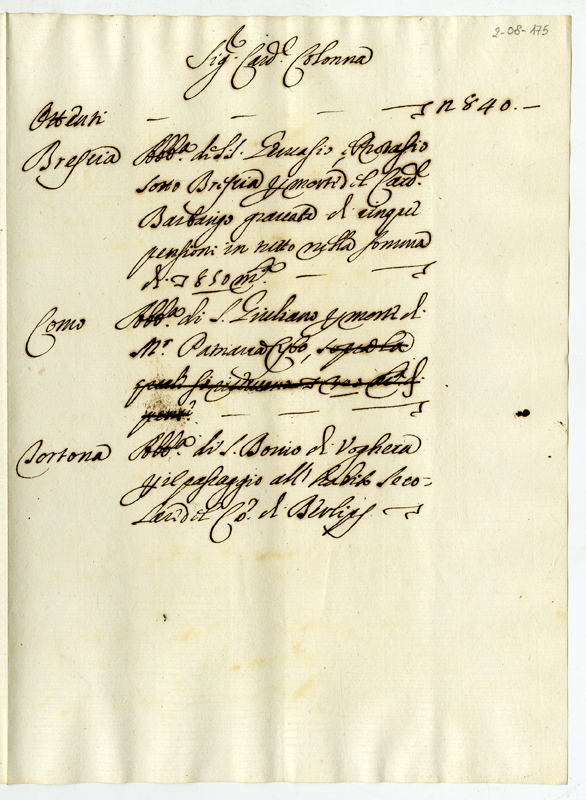 2-08-175
Sig.r Card.l Colonna
Ottenti — — — — n 840.—
Brescia Abb.a di S.S. Gervasio, e Protasio
sotto Brescia p morte del Card.l
Barbarigo gravata di cinque
pensioni in tutto nella somma
di 850 m.ta — —
Como Abb.a di S. Giuliano p morte di
M.r Patriarca Cybo,
— — —
Tortona Abb.a di S. Bovio di Voghera
p il passaggio all'
Co: di